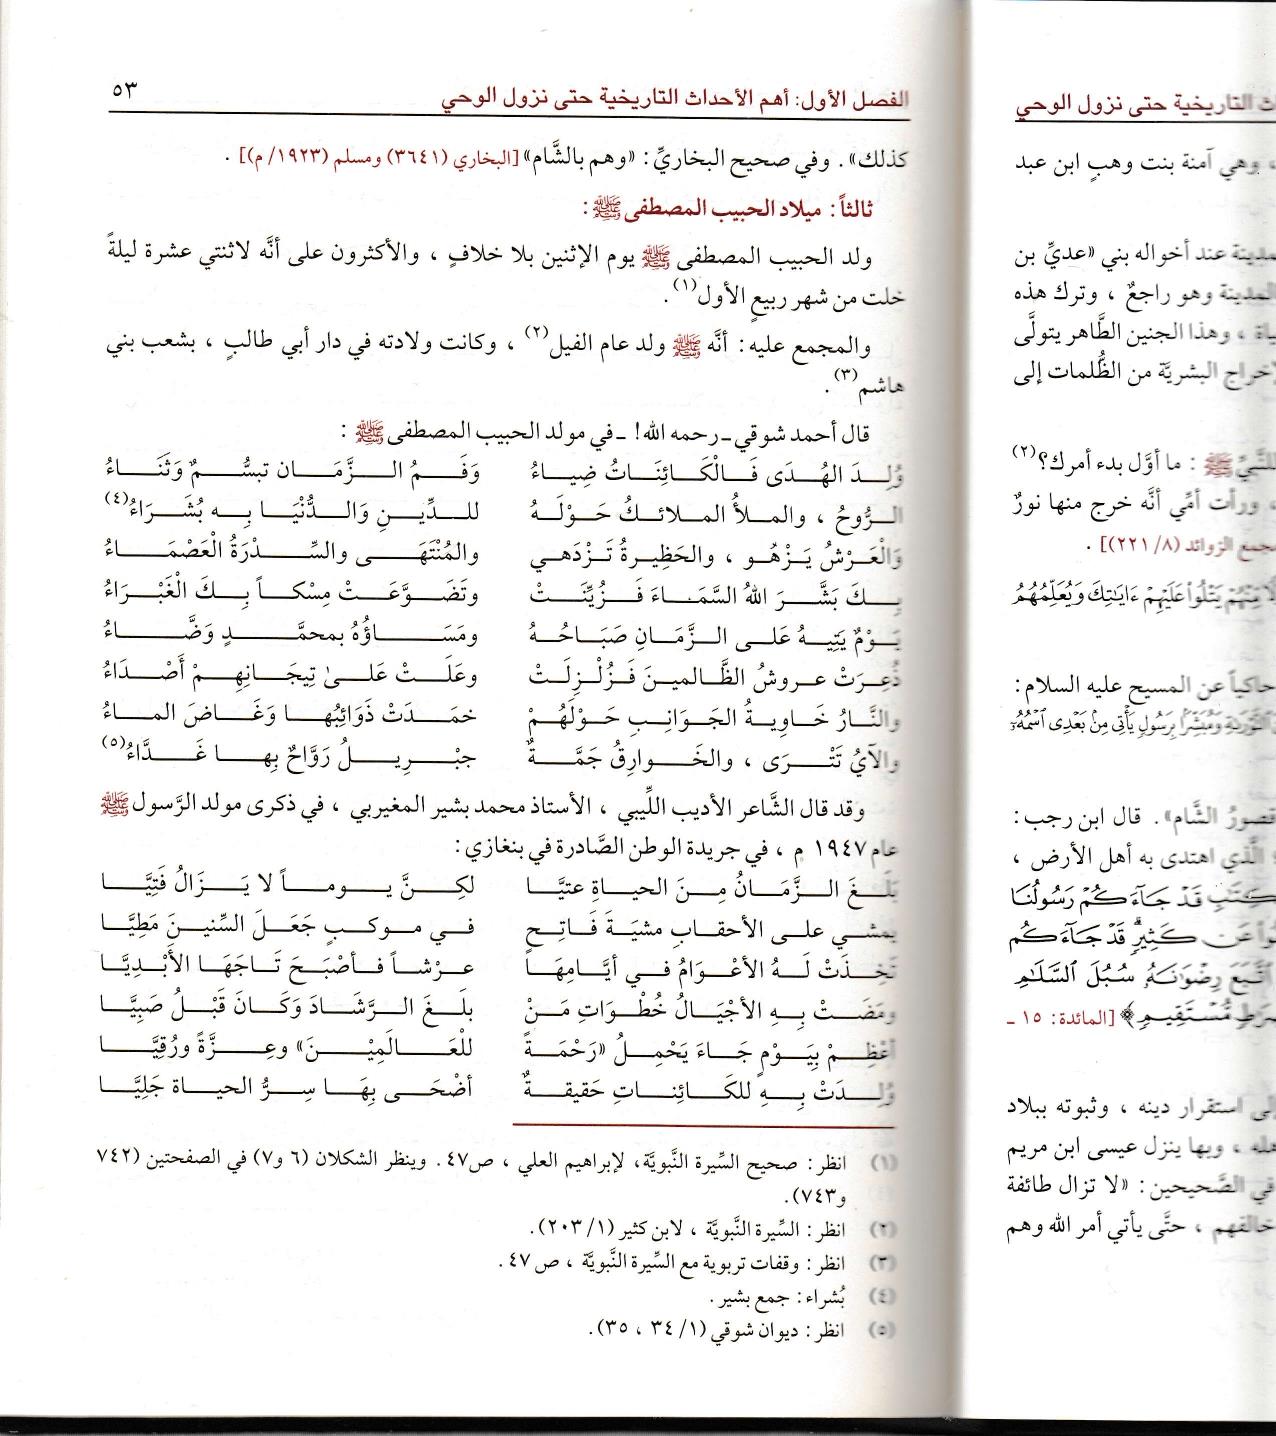 الفصل الأول: أهم الأحداث التاريخية حتى نزول الوحي ٥٣
كذلك» . وفي صحيح البخاريِّ: «وهم بالشَّام» [البخاري (٣٦٤١) ومسلم (١٩٢٣/ م)] .
ثالثاً: ميلاد الحبيب المصطفى ﷺ :
ولد الحبيب المصطفى ﷺ يوم الإثنين بلا خلافٍ ، والأكثرون على أنَّه لاثنتي عشرة ليلةً
خلت من شهر ربيعٍ الأول(١) .
والمجمع عليه: أنَّه ﷺ ولد عام الفيل(٢) ، وكانت ولادته في دار أبي طالبٍ ، بشعب بني
هاشم(٣) .
قال أحمد شوقي ـ رحمه الله! ـ في مولد الحبيب المصطفى ﷺ :
وُلِدَ الهُدَى فَالْكَائِنَاتُ ضِيَاءُ وَفَمُ الزَّمَانِ تبسُّمٌ وَثَنَاءُ
الرُّوحُ ، والملأُ الملائكُ حَوْلَهُ للدِّينِ وَالدُّنْيَا بِهِ بُشَرَاءُ(٤)
وَالْعَرْشُ يَزْهُو ، والحَظِيرةُ تَزْدَهي والمُنْتَهَى والسِّدْرَةُ الْعَصْمَاءُ
بِكَ بَشَّرَ اللهُ السَّمَاءَ فَزُيِّنَتْ وتَضَوَّعَتْ مِسْكاً بِكَ الْغَبْرَاءُ
يَوْمٌ يَتِيهُ عَلى الزَّمَانِ صَبَاحُهُ ومَسَاؤُهُ بمحمَّدٍ وَضَّاءُ
ذُعِرَتْ عروشُ الظَّالمينَ فَزُلْزِلَتْ وعَلَتْ عَلىٰ تِيجَانِهِمْ أَصْدَاءُ
والنَّارُ خَاوِيةُ الجَوَانِبِ حَوْلَهُمْ خمَدَتْ ذَوَائِبُها وَغَاضَ الماءُ
والآيُ تَتْرَى ، والخَوارِقُ جَمَّةٌ جبْرِيلُ رَوَّاحٌ بِها غَدَّاءُ(٥)
وقد قال الشَّاعر الأديب اللِّيبي ، الأستاذ محمد بشير المغيربي ، في ذكرى مولد الرَّسول ﷺ
عام ١٩٤٧ م ، في جريدة الوطن الصَّادرة في بنغازي:
بَلَغَ الزَّمَانُ مِنَ الحياةِ عتيَّا لكِنَّ يوماً لا يَزَالُ فَتِيَّا
يمشي على الأحقابِ مشيَةَ فَاتِحٍ في موكبٍ جَعَلَ السِّنينَ مَطِيَّا
تخِذَتْ لَهُ الأعْوَامُ في أيَّامِهَا عرْشاً فأصْبَحَ تَاجَهَا الأَبْدِيَّا
ومَضَتْ بِهِ الأجْيَالُ خُطْوَاتِ مَنْ بلَغَ الرَّشَادَ وَكَانَ قَبْلُ صَبِيَّا
أعْظِمْ بِيَوْمٍ جَاءَ يَحْمِلُ «رَحْمَةً للْعَالَمِيْنَ» وعِزَّةً ورُقِيَّا
وُلِدَتْ بِهِ للكَائِنَاتِ حَقيقةٌ أضْحَى بِهَا سِرُّ الحياة جَلِيَّا
(١) انظر: صحيح السِّيرة النَّبويَّة، لإبراهيم العلي ، ص٤٧. وينظر الشكلان (٦ و٧) في الصفحتين (٧٤٢
و٧٤٣).
(٢) انظر: السِّيرة النَّبويَّة ، لابن كثير (١/ ٢٠٣).
(٣) انظر: وقفات تربوية مع السِّيرة النَّبويَّة ، ص ٤٧.
(٤) بُشراء: جمع بشير.
(٥) انظر: ديوان شوقي (١/ ٣٤ ، ٣٥).
التاريخية حتى نزول الوحي
وهي آمنة بنت وهبٍ ابن عبد
عند أخواله بني «عديِّ بن
المدينة وهو راجعٌ ، وترك هذه
، وهذا الجنين الطَّاهر يتولَّى
البشريَّة من الظُّلمات إلى
ﷺ : ما أوَّل بدء أمرك؟(٢)
، ورأت أمِّي أنَّه خرج منها نورٌ
مجمع الزوائد (٨/ ٢٢١)] .
مِّنْهُمْ يَتْلُوا عَلَيْهِمْ ءَايَٰتِكَ وَيُعَلِّمُهُمُ
حاكياً عن المسيح عليه السلام:
وَمُبَشِّرًا بِرَسُولٍ يَأْتِي مِنۢ بَعْدِي ٱسْمُهُۥ
قصورُ الشَّام» . قال ابن رجب:
الَّذي اهتدى به أهل الأرض ،
قَدْ جَآءَكُمْ رَسُولُنَا
عَن كَثِيرٍ قَدْ جَآءَكُم
ٱتَّبَعَ رِضْوَٰنَهُۥ سُبُلَ ٱلسَّلَٰمِ
مُّسْتَقِيمٍ﴾ [المائدة: ١٥ ـ
استقرار دينه ، وثبوته ببلاد
، وبها ينزل عيسى ابن مريم
في الصَّحيحين: «لا تزال طائفة
خالفهم ، حتَّى يأتي أمر الله وهم